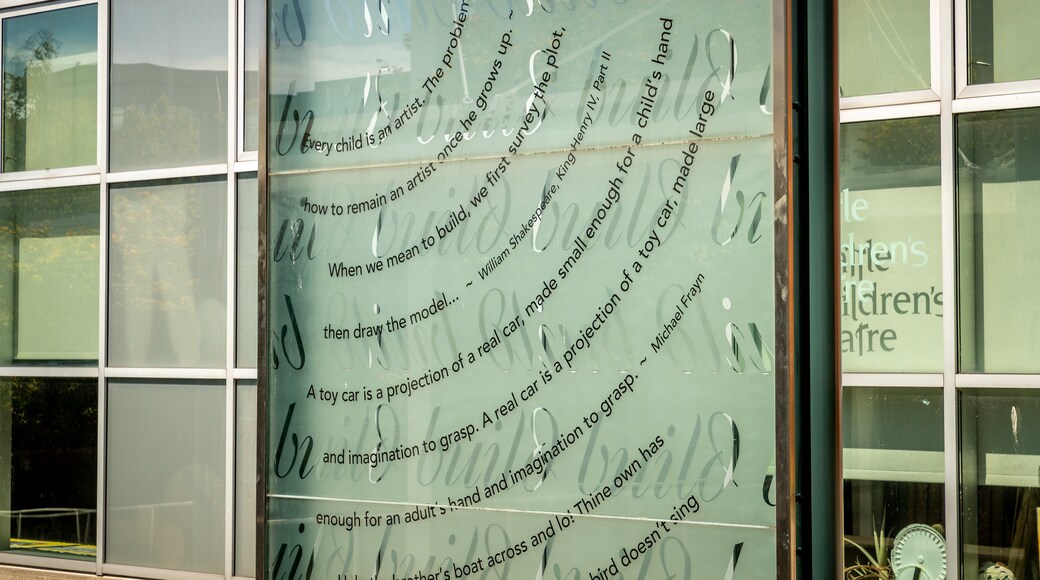 Every child is an artist. The problem
how to remain an artist once he grows up. ~
When we mean to build, we first survey the plot,
then draw the model... ~ William Shakespeare, King Henry IV, Part II
A toy car is a projection of a real car, made small enough for a child's hand
and imagination to grasp. A real car is a projection of a toy car, made large
enough for an adult's hand and imagination to grasp. ~ Michael Frayn
brother's boat across and lo! Thine own has
bird doesn't sing
build build
build build
build build